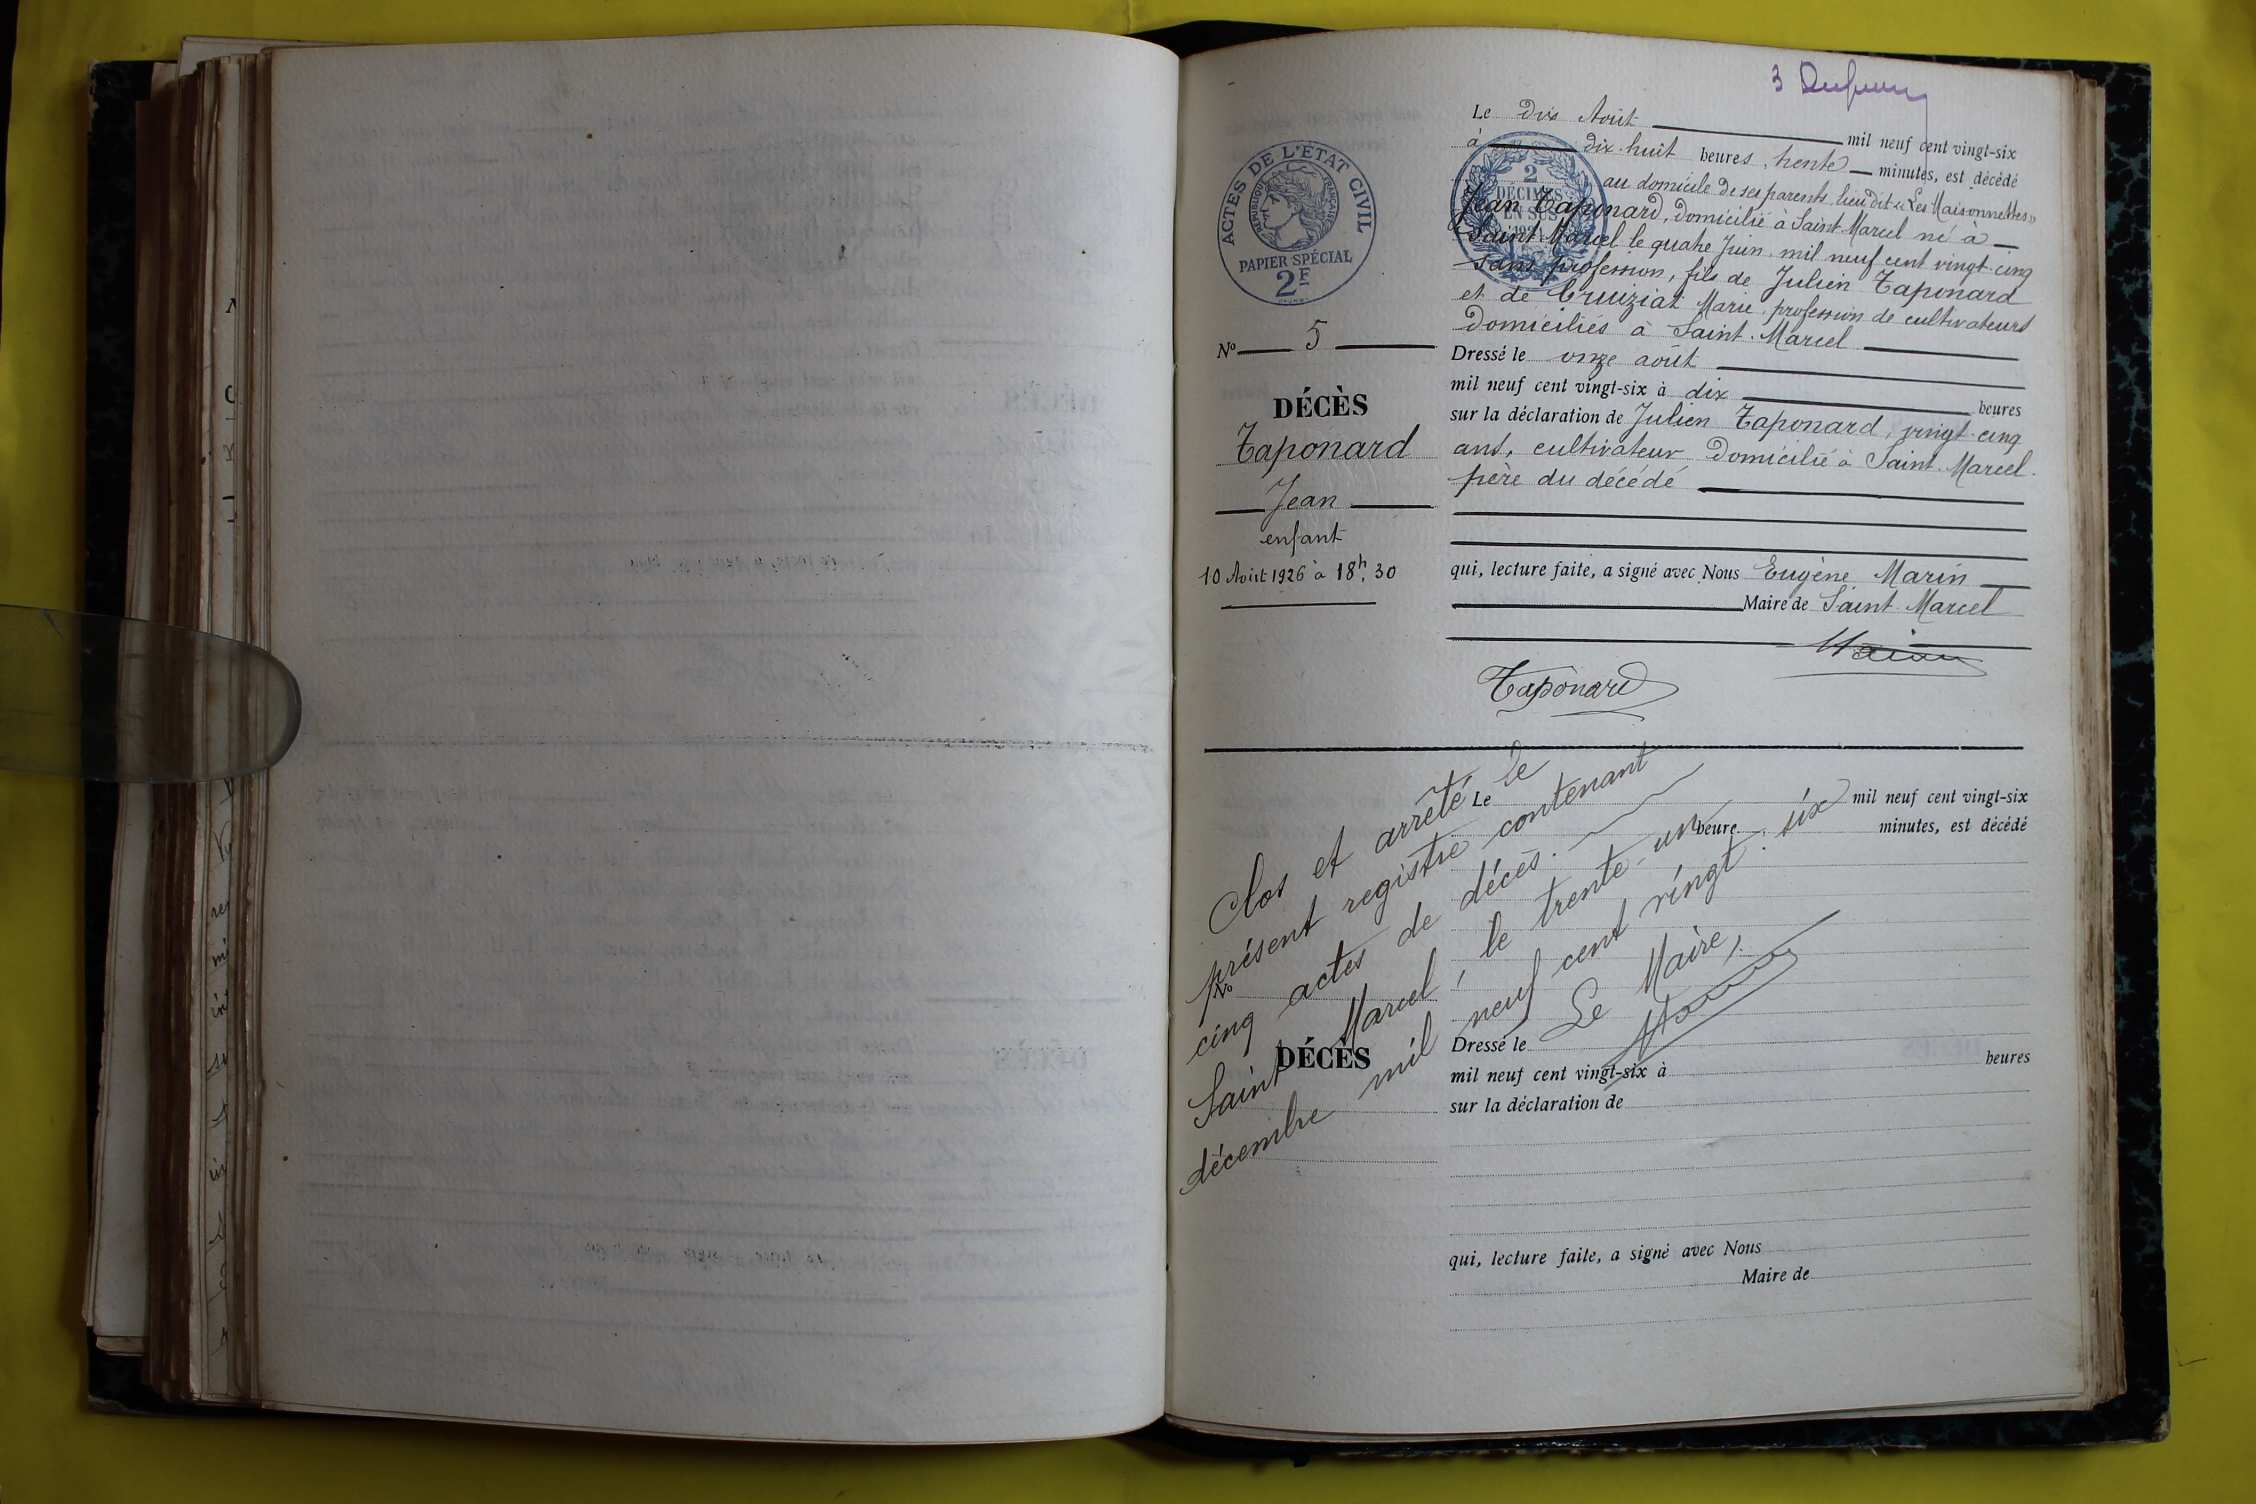 3
Le dix Août mil neuf cent vingt-six
à dix-huit heures, trente minutes, est décédé
au domicile de ses parents lieu dit « Les Maisonnettes »
Jean Taponard, domicilié à Saint-Marcel né à
Saint-Marcel le quatre Juin mil neuf cent vingt-cinq
sans profession, fils de Julien Taponard
et de Cruiziat Marie, profession de cultivateurs
domiciliés à Saint-Marcel
Dressé le onze août
mil neuf cent vingt-six à dix heures
sur la déclaration de Julien Taponard, vingt-cinq
ans, cultivateur domicilié à Saint-Marcel.
père du décédé
qui, lecture faite, a signé avec Nous Eugène Marin
Maire de Saint-Marcel
Marin
Taponard
ACTES DE L'ÉTAT CIVIL
RÉPUBLIQUE FRANÇAISE
PAPIER SPÉCIAL
2F
2
DÉCIMES
EN SUS
No 5
DÉCÈS
Taponard
Jean
enfant
10 Août 1926 à 18h,30
Clos et arrêté le
présent registre contenant
cinq actes de décès.
Saint Marcel, le trente-un
décembre mil neuf cent vingt-six
Le Maire,
Marin
Le mil neuf cent vingt-six
heure minutes, est décédé
No
DÉCÈS
Dressé le
mil neuf cent vingt-six à heures
sur la déclaration de
qui, lecture faite, a signé avec Nous
Maire de